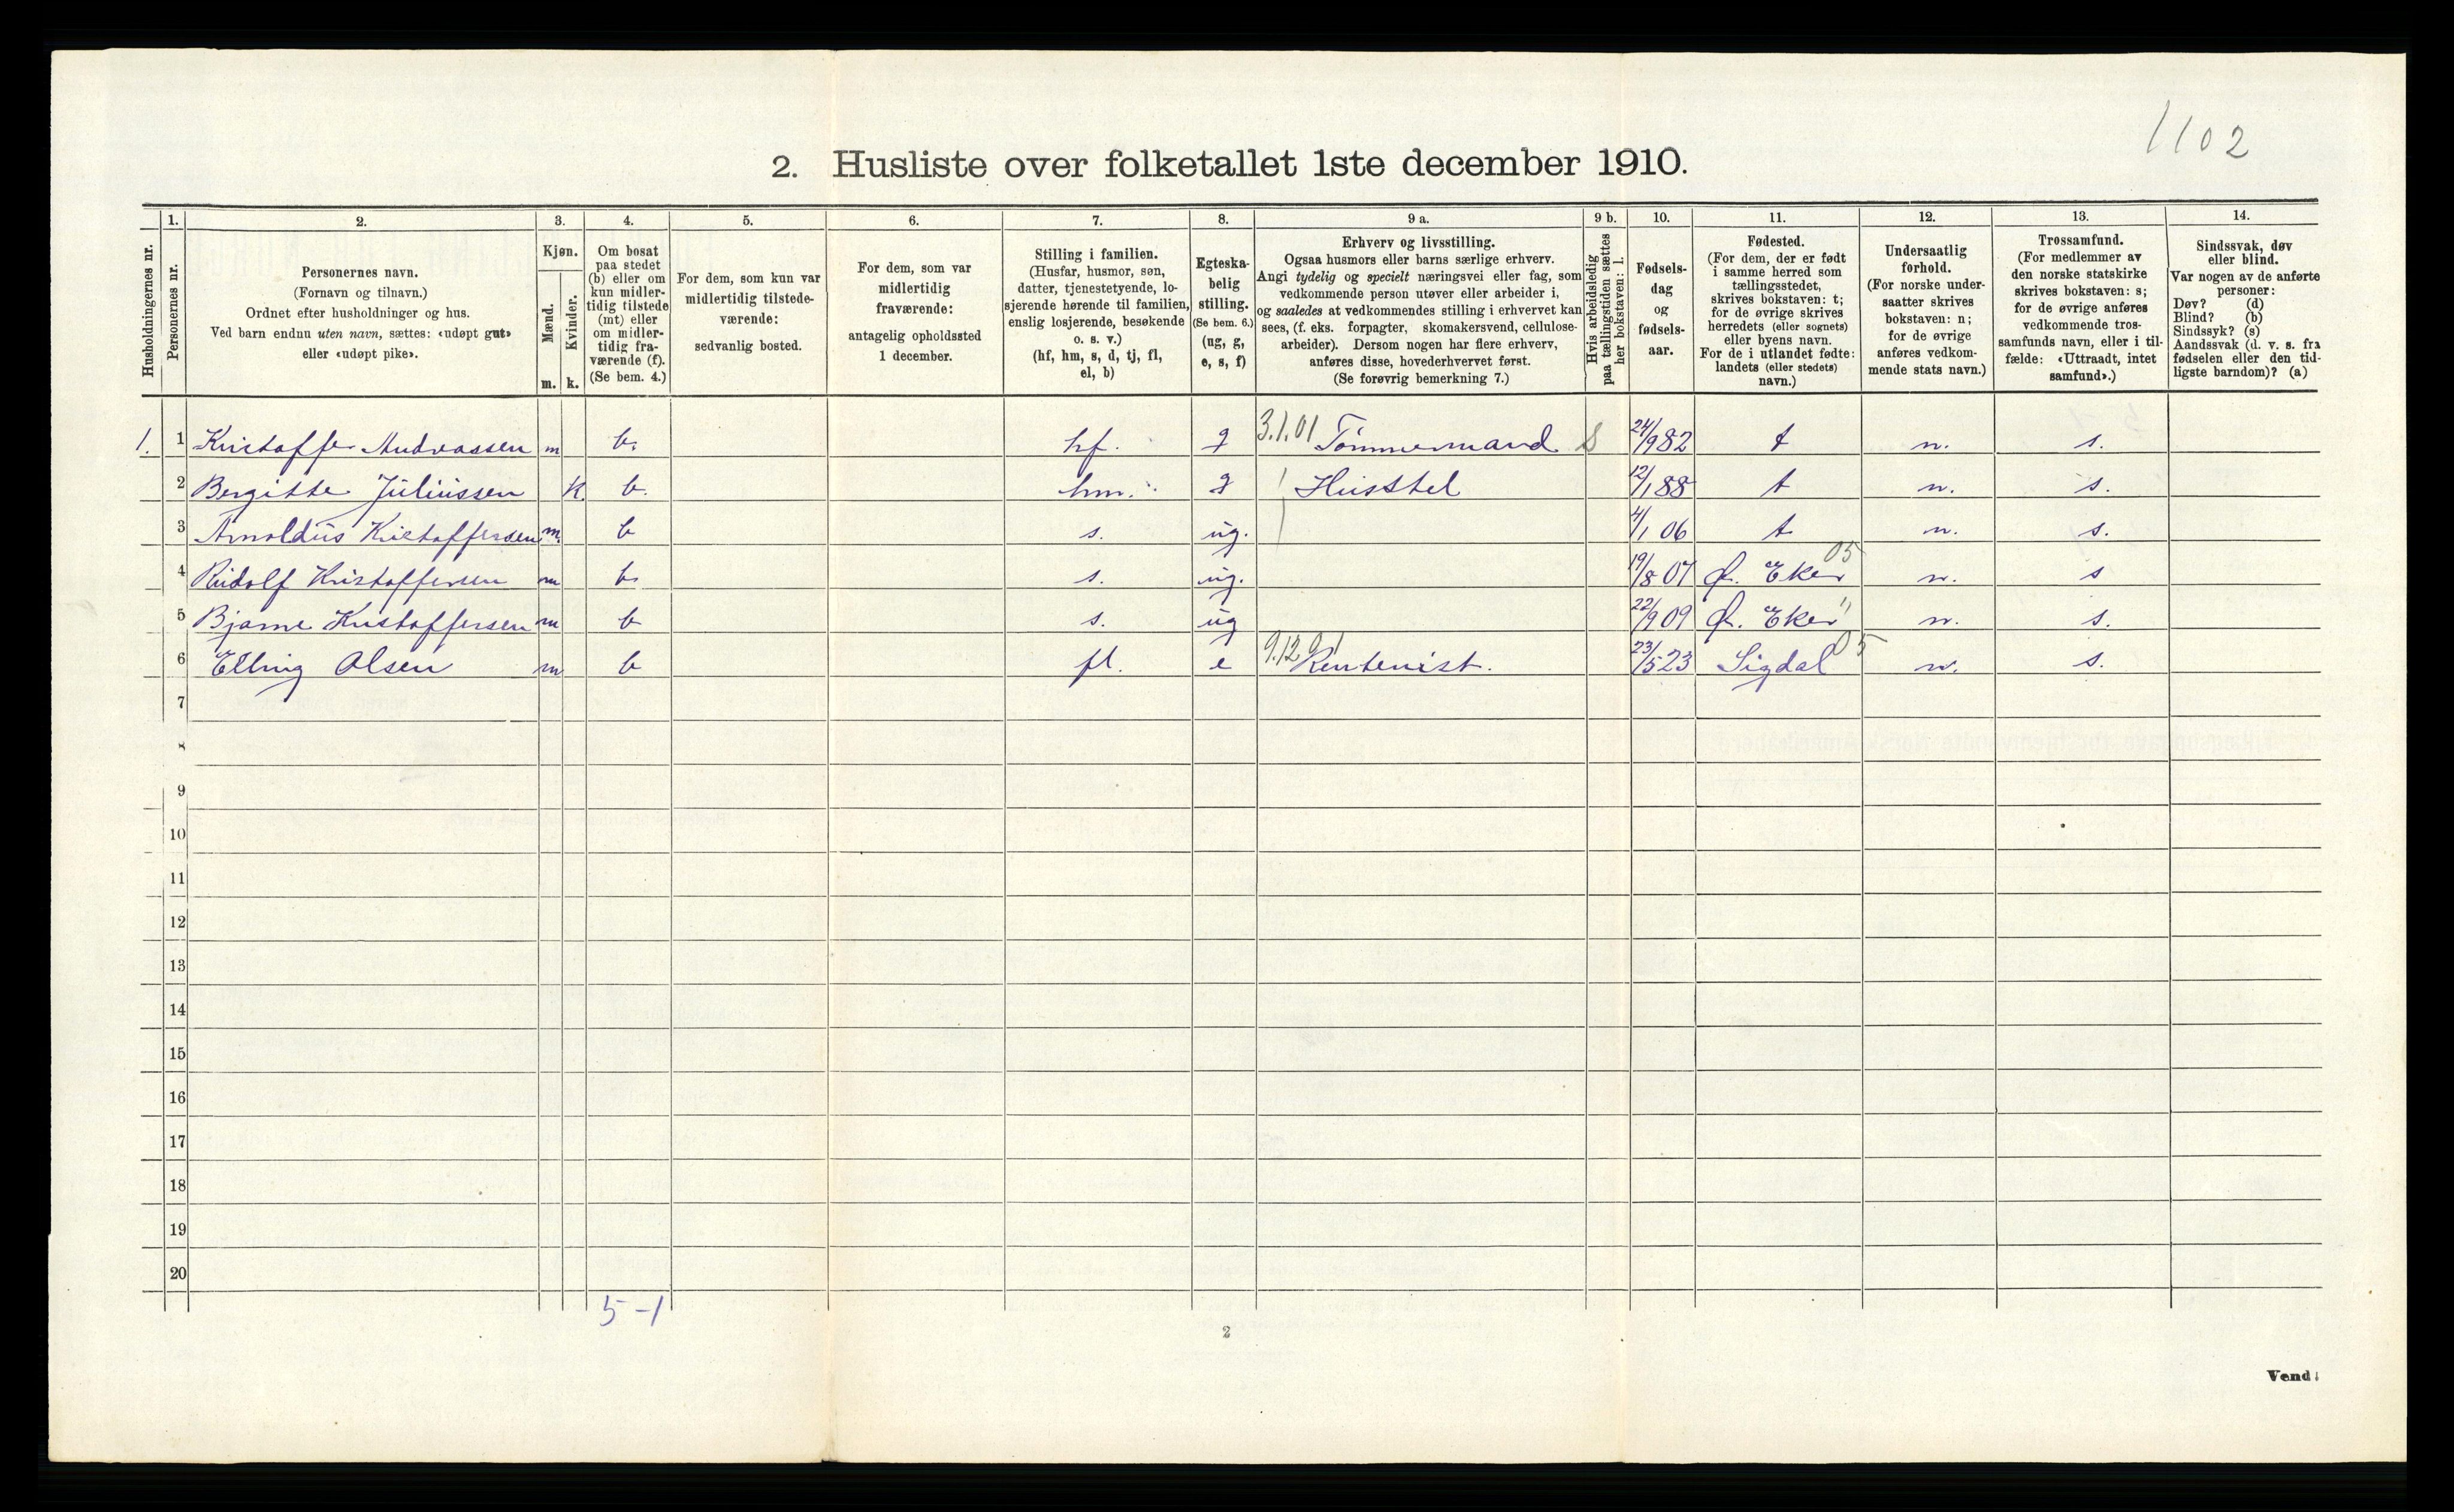 1102
2. Husliste over folketallet 1ste december 1910.
Husholdningernes nr.
1.
Personernes nr.
2.
Personernes navn.
(Fornavn og tilnavn.)
Ordnet efter husholdninger og hus.
Ved barn endnu uten navn, sættes: «udøpt gut»
eller «udøpt pike».
3.
Kjøn.
Mænd.
Kvinder.
m. k.
4.
Om bosat
paa stedet
(b) eller om
kun midler-
tidig tilstede
(mt) eller
om midler-
tidig fra-
værende (f).
(Se bem. 4.)
5.
For dem, som kun var
midlertidig tilstede-
værende:
sedvanlig bosted.
6.
For dem, som var
midlertidig
fraværende:
antagelig opholdssted
1 december.
7.
Stilling i familien.
(Husfar, husmor, søn,
datter, tjenestetyende, lo-
sjerende hørende til familien,
enslig losjerende, besøkende
o. s. v.)
(hf, hm, s, d, tj, fl,
el, b)
8.
Egteska-
belig
stilling.
(Se bem. 6.)
(ug, g,
e, s, f)
9 a.
Erhverv og livsstilling.
Ogsaa husmors eller barns særlige erhverv.
Angi tydelig og specielt næringsvei eller fag, som
vedkommende person utøver eller arbeider i,
og saaledes at vedkommendes stilling i erhvervet kan
sees, (f. eks. forpagter, skomakersvend, cellulose-
arbeider). Dersom nogen har flere erhverv,
anføres disse, hovederhvervet først.
(Se forøvrig bemerkning 7.)
9 b.
Hvis arbeidsledig
paa tællingstiden sættes
her bokstaven: l.
10.
Fødsels-
dag
og
fødsels-
aar.
11.
Fødested.
(For dem, der er født
i samme herred som
tællingsstedet,
skrives bokstaven: t;
for de øvrige skrives
herredets (eller sognets)
eller byens navn.
For de i utlandet fødte:
landets (eller stedets)
navn.)
12.
Undersaatlig
forhold.
(For norske under-
saatter skrives
bokstaven: n;
for de øvrige
anføres vedkom-
mende stats navn.)
13.
Trossamfund.
(For medlemmer av
den norske statskirke
skrives bokstaven: s;
for de øvrige anføres
vedkommende tros-
samfunds navn, eller i til-
fælde: «Uttraadt, intet
samfund».)
14.
Sindssvak, døv
eller blind.
Var nogen av de anførte
personer:
Døv? (d)
Blind? (b)
Sindssyk? (s)
Aandssvak (d. v. s. fra
fødselen eller den tid-
ligste barndom)? (a)
1. 1 Kristoffer Andreassen m b. hf. g 3.1.01 Tømmermand S 24/9 82 t n. s.
2 Bergitte Juliussen k. b. hm. g Husstel 12/1 88 t n. s.
3 Arnoldus Kristoffersen m. b s. ug. 4/1 06 t n. s.
4 Rudolf Kristoffersen m b. s. ug. 19/8 07 Ø. Eker 05 n. s
5 Bjarne Kristoffersen m b s. ug 22/9 09 Ø. Eker " n. s.
6 Elling Olsen m b fl. e 9.12.01 Rentenist. 23/5 23 Sigdal 05 n. s.
7
8
9
10
11
12
13
14
15
16
17
18
19
20
5 - 1
2
Vend!